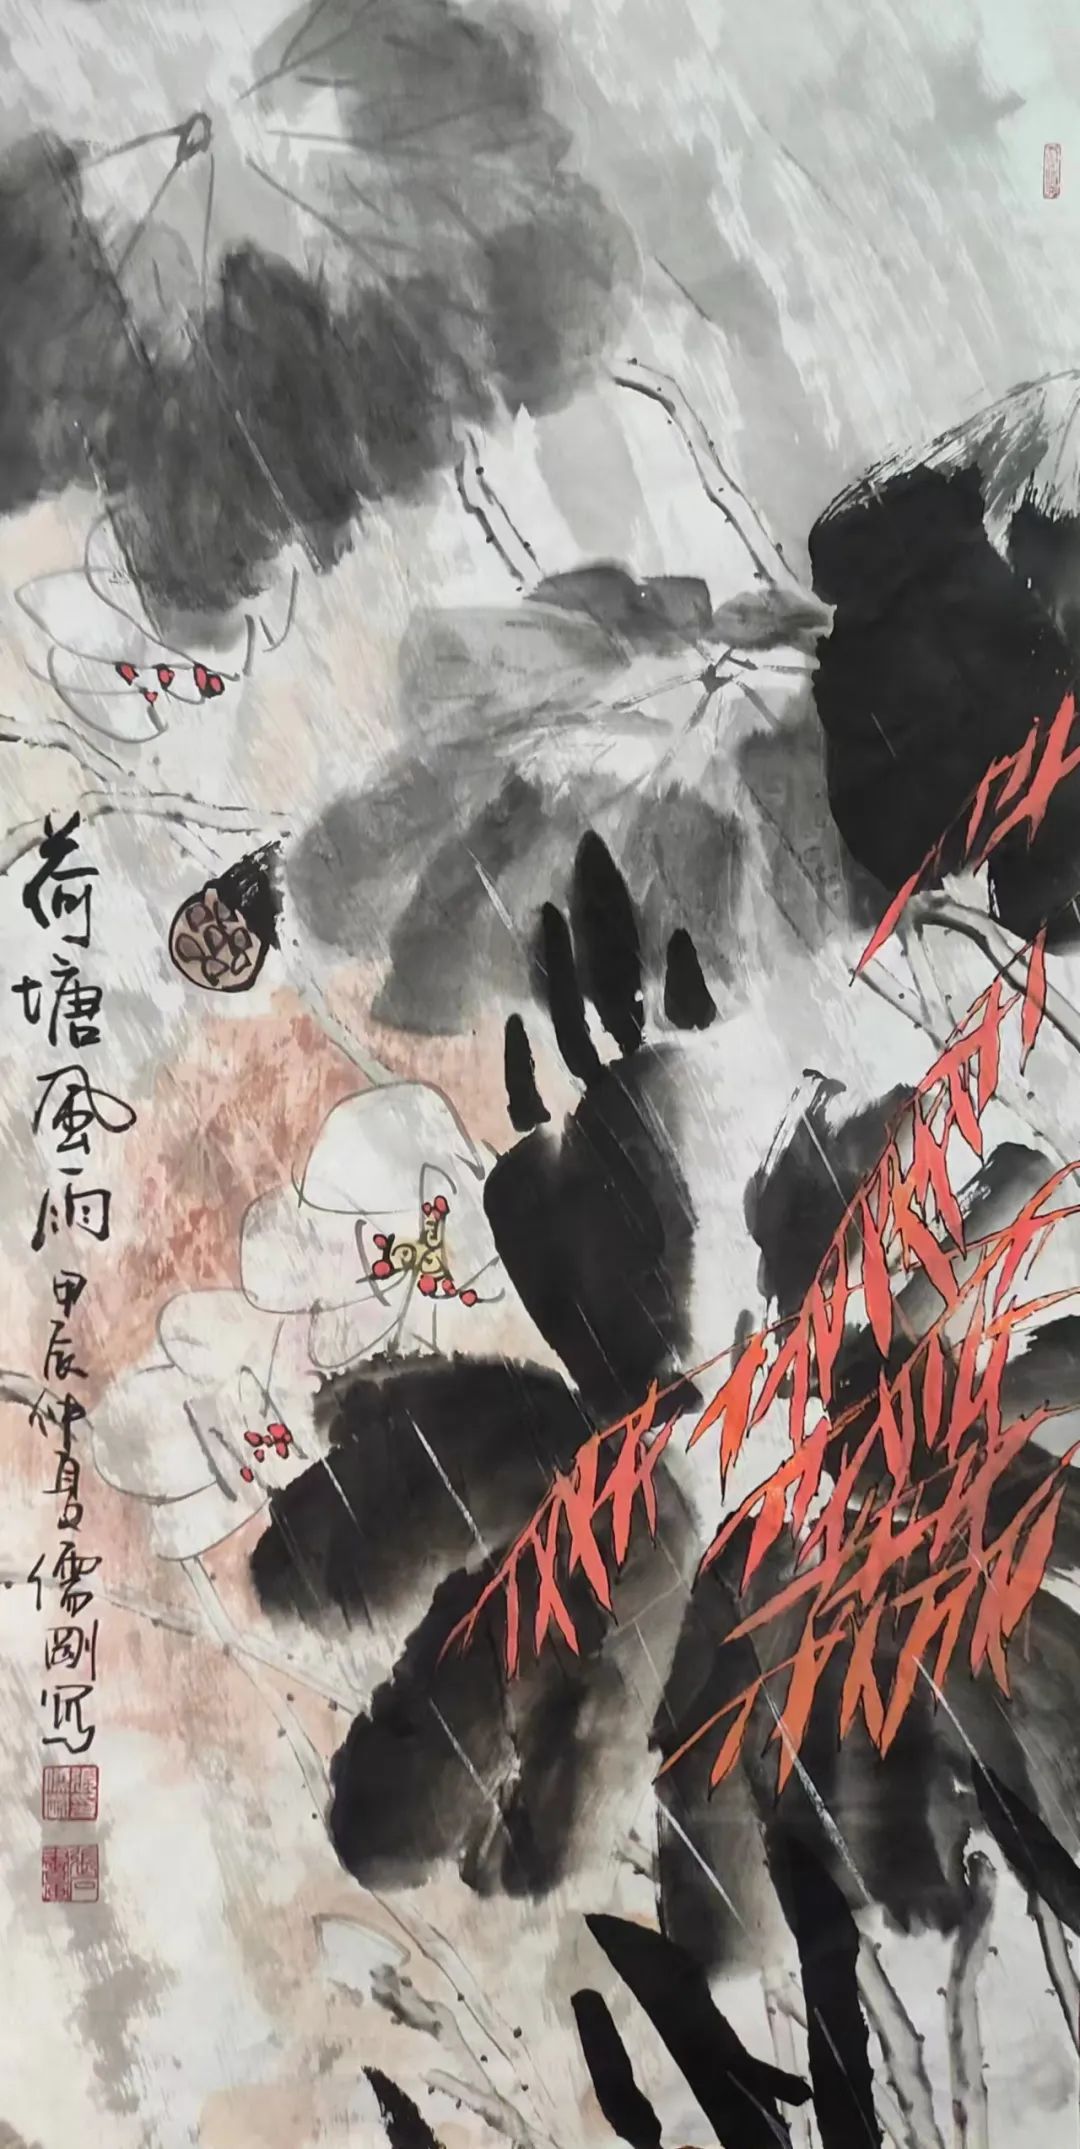 荷塘風雨
甲辰仲夏儒剛写